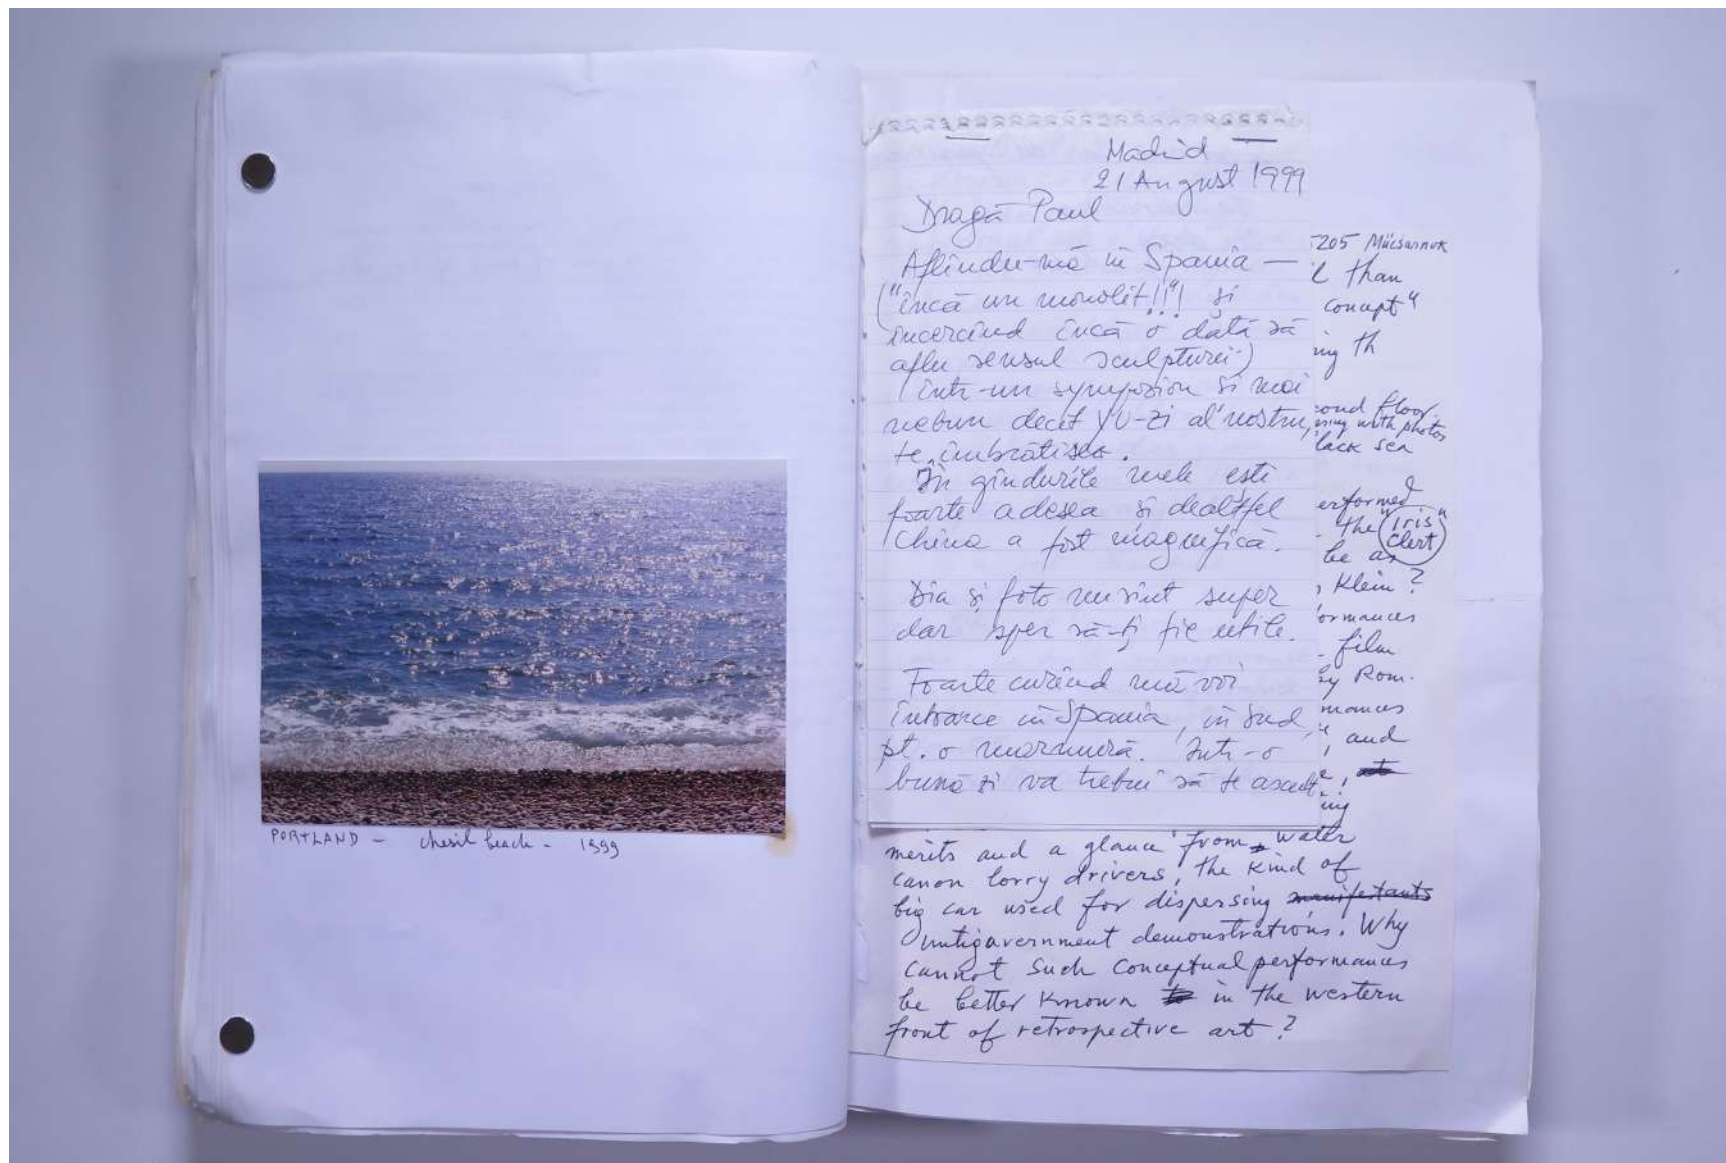 PORTLAND - chesil beach - 1999
Madrid
21 August 1999
Dragă Paul
Aflîndu-mă în Spania —
("încă un monolit!!"! și
încercînd încă o dată să
aflu sensul sculpturii)
într-un sympozion și mai
nebun decît YU-zi al nostru,
te îmbrățișez.
În gîndurile mele ești
foarte adesea și dealtfel
China a fost magnifică.
Dia și foto nu sînt super
dar sper să-ți fie utile.
Foarte curînd mă voi
întoarce în Spania, în Sud,
pt. o marmură. Într-o
bună zi va trebui să te
205 Mücsarnok
than
concept"
ing th
ond floor.
with photos
lack sea
erformed
the "Iris
Clert"
be as
Klein?
ormances
film
by Rom.
mances
, and
ing
merits and a glance from water
canon lorry drivers, the kind of
big car used for dispersing manifestants
antigavernment demonstrations. Why
cannot such conceptual performances
be better known to in the western
front of retrospective art?